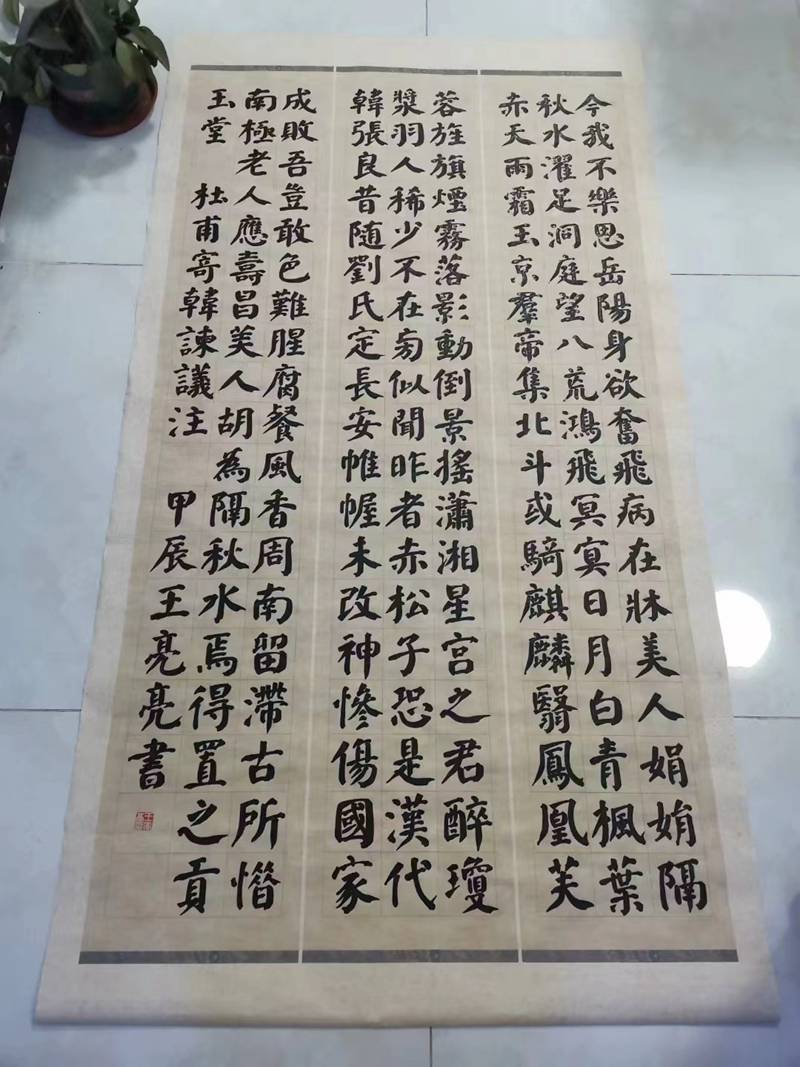 今我不樂思岳陽身欲奮飛病在牀美人娟娟隔
秋水濯足洞庭望八荒鴻飛冥冥日月白青楓葉
赤天雨霜玉京羣帝集北斗或騎麒麟翳鳳凰芙
蓉旌旗煙霧落影動倒景搖瀟湘星宮之君醉瓊
漿羽人稀少不在旁似聞昨者赤松子恐是漢代
韓張良昔随劉氏定長安帷幄未改神慘傷國家
成敗吾豈敢色難腥腐餐風香周南留滯古所惜
南極老人應壽昌美人胡為隔秋水焉得置之貢
玉堂 杜甫寄韓諫議注 甲辰王亮亮書